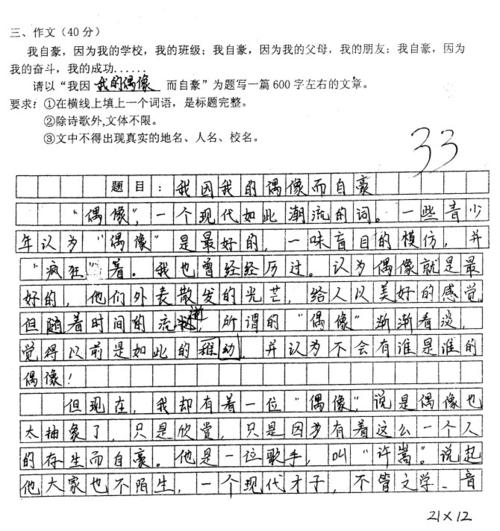 三、作文(40分)
我自豪，因为我的学校，我的班级；我自豪，因为我的父母，我的朋友；我自豪，因为
我的奋斗，我的成功……
请以“我因 我的偶像 而自豪”为题写一篇600字左右的文章。
要求：①在横线上填上一个词语，是标题完整。
②除诗歌外，文体不限。
③文中不得出现真实的地名、人名、校名。
33
题目：我因我的偶像而自豪
“偶像”，一个现代如此潮流的词。一些青少
年认为“偶像”是最好的，一味盲目的模仿，并
“疯狂”着。我也曾经经历过。认为偶像就是最
好的，他们外表散发的光芒，给人以美好的感觉
但随着时间的流逝，所谓的“偶像”渐渐看淡，
觉得以前是如此的 动，并认为不会有谁是谁的
偶像！
但现在，我却有着一位“偶像”，说是偶像也
太抽象了，只是欣赏，只是因为有着这么一个人
的存生而自豪。他是一位歌手，叫“许嵩”。说起
他大家也不陌生，一个现代才子，不管文学、音
21×12